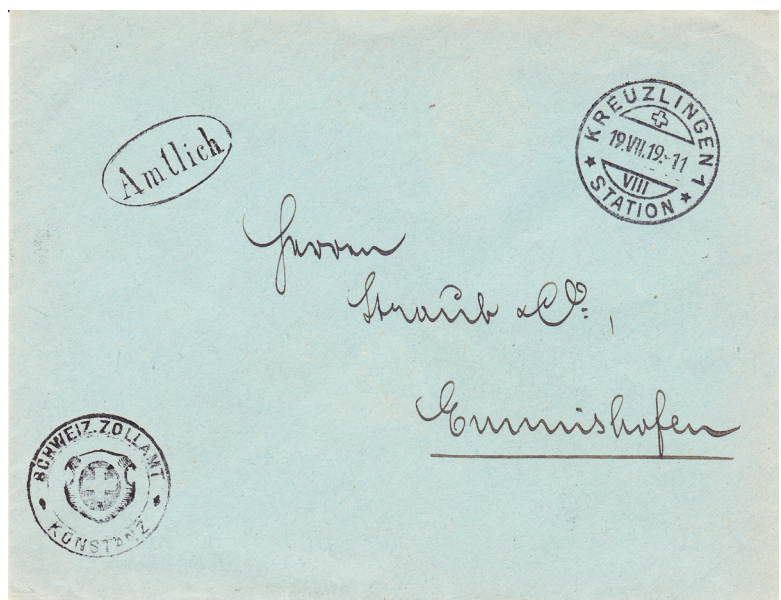 Amtlich
KREUZLINGEN 1
19.VII.19.-11
VIII
STATION
Herren
Straub & Co.,
Emmishofen
SCHWEIZ. ZOLLAMT
KONSTANZ